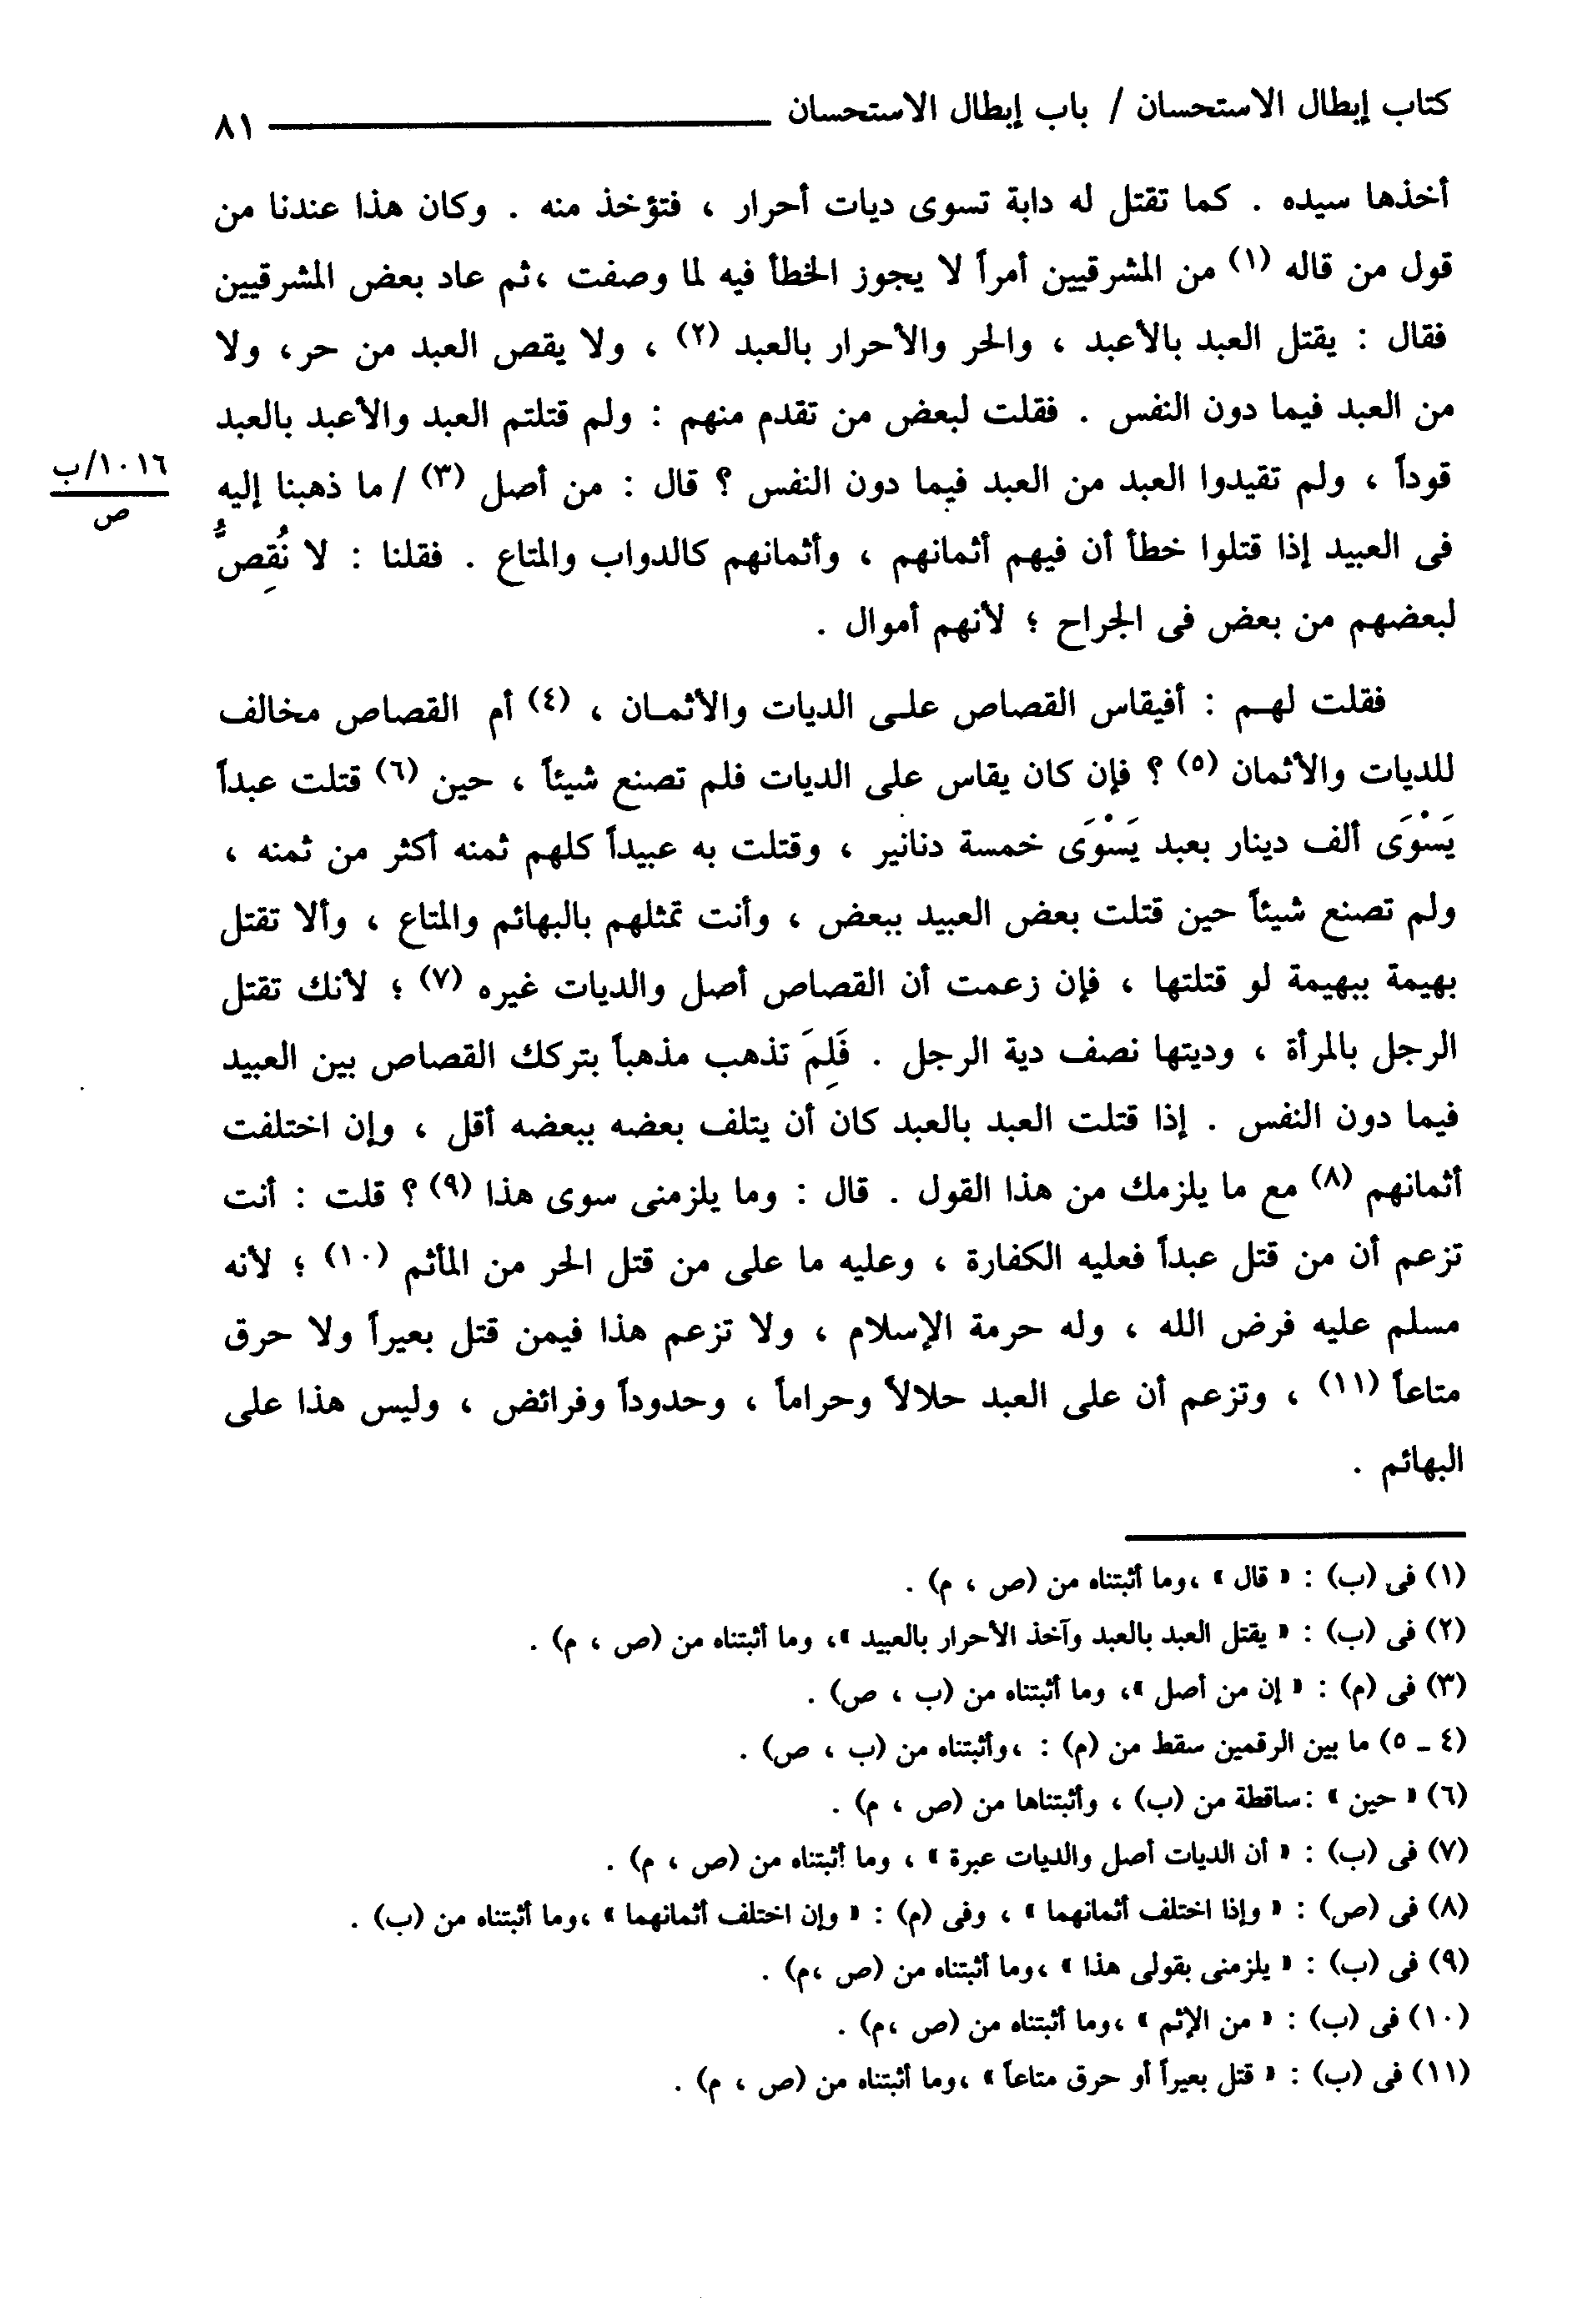 كتاب إبطال الاستحسان / باب إبطال الاستحسان ــــــــــ ٨١
أخذها سيده . كما تقتل له دابة تسوى ديات أحرار ، فتؤخذ منه . وكان هذا عندنا من
قول من قاله (١) من المشرقيين أمراً لا يجوز الخطأ فيه لما وصفت ،ثم عاد بعض المشرقيين
فقال : يقتل العبد بالأعبد ، والحر والأحرار بالعبد (٢) ، ولا يقص العبد من حر، ولا
من العبد فيما دون النفس . فقلت لبعض من تقدم منهم : ولم قتلتم العبد والأعبد بالعبد
قوداً ، ولم تقيدوا العبد من العبد فيما دون النفس ؟ قال : من أصل (٣) / ما ذهبنا إليه
١٠١٦/ب
ص
فى العبيد إذا قتلوا خطأ أن فيهم أثمانهم ، وأثمانهم كالدواب والمتاع . فقلنا : لا نُقِصُّ
لبعضهم من بعض فى الجراح ؛ لأنهم أموال .
فقلت لهـم : أفيقاس القصاص علـى الديات والأثمـان ، (٤) أم القصاص مخالف
للديات والأثمان (٥) ؟ فإن كان يقاس على الديات فلم تصنع شيئاً ، حين (٦) قتلت عبداً
يَسْوَى ألف دينار بعبد يَسْوَى خمسة دنانير ، وقتلت به عبيداً كلهم ثمنه أكثر من ثمنه ،
ولم تصنع شيئاً حين قتلت بعض العبيد ببعض ، وأنت تمثلهم بالبهائم والمتاع ، وألا تقتل
بهيمة ببهيمة لو قتلتها ، فإن زعمت أن القصاص أصل والديات غيره (٧) ؛ لأنك تقتل
الرجل بالمرأة ، وديتها نصف دية الرجل . فَلِمَ تذهب مذهباً بتركك القصاص بين العبيد
فيما دون النفس . إذا قتلت العبد بالعبد كان أن يتلف بعضه ببعضه أقل ، وإن اختلفت
أثمانهم (٨) مع ما يلزمك من هذا القول . قال : وما يلزمنى سوى هذا (٩) ؟ قلت : أنت
تزعم أن من قتل عبداً فعليه الكفارة ، وعليه ما على من قتل الحر من المأثم (١٠) ؛ لأنه
مسلم عليه فرض الله ، وله حرمة الإسلام ، ولا تزعم هذا فيمن قتل بعيراً ولا حرق
متاعاً (١١) ، وتزعم أن على العبد حلالاً وحراماً ، وحدوداً وفرائض ، وليس هذا على
البهائم .
(١) فى (ب) : « قال » ،وما أثبتناه من (ص ، م) .
(٢) فى (ب) : « يقتل العبد بالعبد وآخذ الأحرار بالعبيد »، وما أثبتناه من (ص ، م) .
(٣) فى (م) : « إن من أصل »، وما أثبتناه من (ب ، ص) .
(٤ ـ ٥) ما بين الرقمين سقط من (م) : ،وأثبتناه من (ب ، ص) .
(٦) « حين » :ساقطة من (ب) ، وأثبتناها من (ص ، م) .
(٧) فى (ب) : « أن الديات أصل والديات عبرة » ، وما أثبتناه من (ص ، م) .
(٨) فى (ص) : « وإذا اختلف أثمانهما » ، وفى (م) : « وإن اختلف أثمانهما » ،وما أثبتناه من (ب) .
(٩) فى (ب) : « يلزمنى بقولى هذا » ،وما أثبتناه من (ص ،م) .
(١٠) فى (ب) : « من الإثم » ،وما أثبتناه من (ص ،م) .
(١١) فى (ب) : « قتل بعيراً أو حرق متاعاً » ،وما أثبتناه من (ص ، م) .